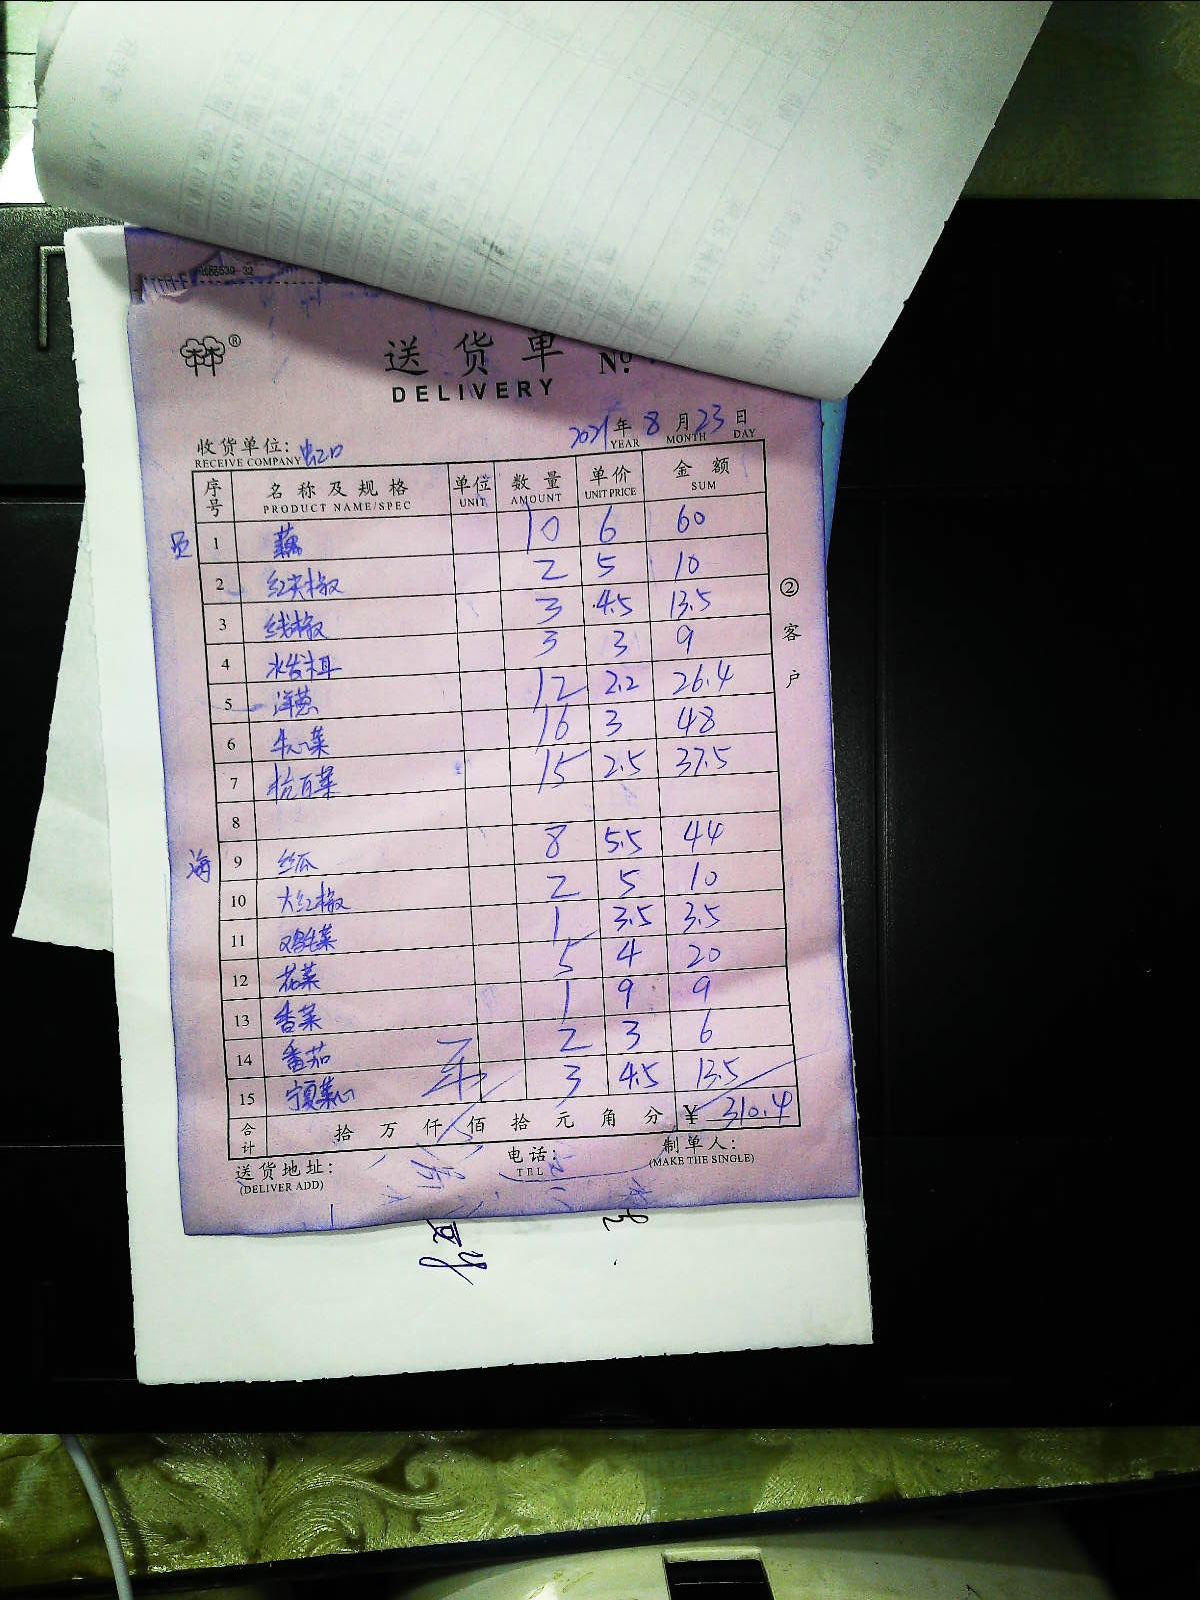 送货单 №
DELIVERY
收货单位: 虹口 2021年 8月 23日
RECEIVE COMPANY YEAR MONTH DAY
序号 名称及规格 单位 数量 单价 金额
PRODUCT NAME/SPEC UNIT AMOUNT UNIT PRICE SUM
员 1 藕 10 6 60
2 红尖椒 2 5 10
3 线椒 3 4.5 13.5
4 水发木耳 3 3 9
5 洋葱 12 2.2 26.4
6 牛心菜 16 3 48
7 杭百菜 15 2.5 37.5
8
海 9 丝瓜 8 5.5 44
10 大红椒 2 5 10
11 鸡毛菜 1 3.5 3.5
12 花菜 5 4 20
13 香菜 1 9 9
14 番茄 2 3 6
15 宁夏菜心 3 4.5 13.5
合计 拾 万 仟 佰 拾 元 角 分 ¥ 310.4
送货地址: 电话: 制单人:
(DELIVER ADD) TEL (MAKE THE SINGLE)
② 客户